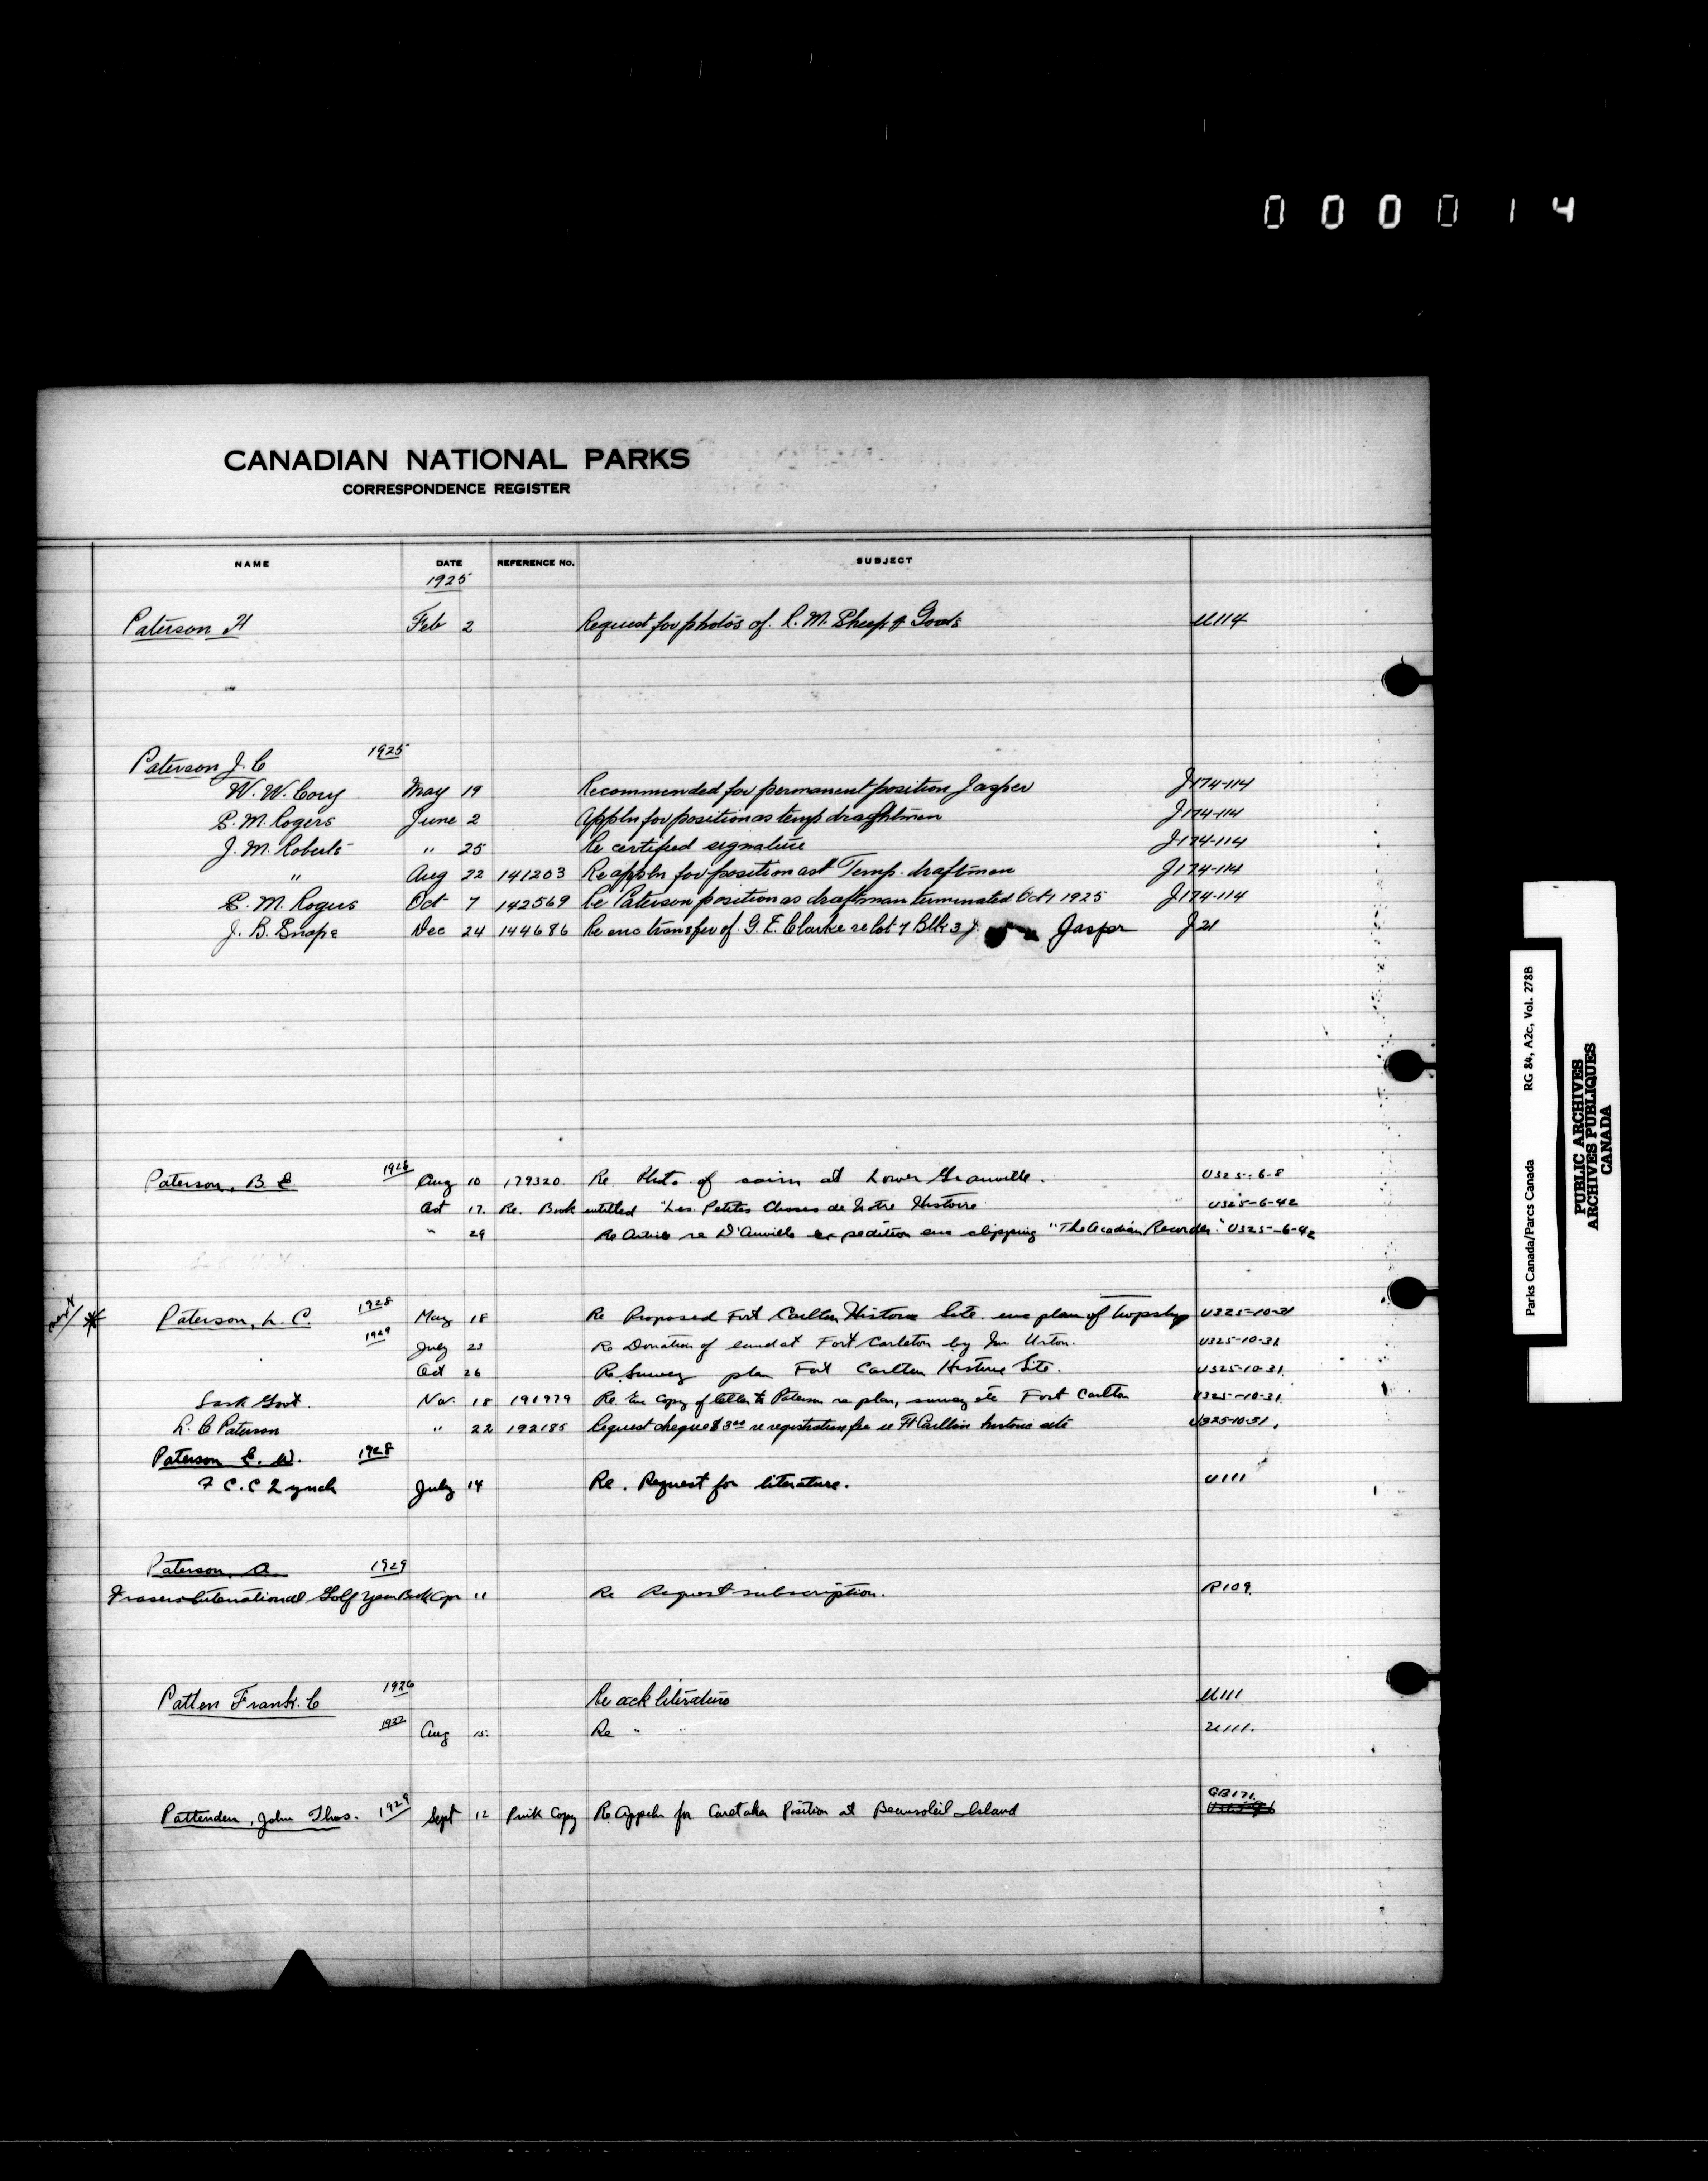 000014
CANADIAN NATIONAL PARKS
CORRESPONDENCE REGISTER
NAME DATE REFERENCE No. SUBJECT
1925
Paterson H Feb 2 Request for photos of R. M. Sheep & Goats U114
Paterson J. C 1925
W. W. Cory May 19 Recommended for permanent position Jasper J174-114
S. M. Rogers June 2 Appln for position as temp draughtman J174-114
J. M. Roberts " 25 Re certified signature J174-114
" Aug 22 141203 Re appln for position ast Temp. draftman J174-114
S. M. Rogers Oct 7 142569 Re Paterson position as draftman terminated Oct 1 1925 J174-114
J. B. Snape Dec 24 144686 Re enc transfer of G. E. Clarke re lot 7 Blk 3 Jasper J21
Paterson, B E 1928 Aug 10 179320 Re Photo of cairn at Lower Granville. U325-6-8
Oct 17 Re. Book entitled "Les Petites Choses de Notre Histoire U325-6-42
" 29 Re Article re D'Anville expedition enc clipping "The Acadian Recorder" U325-6-42
Paterson, L. C. 1928 May 18 Re Proposed Fort Carlton Historic Site enc plan of twpship U325-10-31
1929 July 23 Re Donation of land at Fort Carleton by Urton. U325-10-31
Oct 26 Re Survey plan Fort Carlton Historic Site. U325-10-31
Sask Govt. Nov. 18 191979 Re Enc copy of letter to Paterson re plan, survey etc Fort Carlton U325-10-31
R. C Paterson " 22 192185 Request cheque $3.00 re registration fee re Ft Carlton historic site U325-10-31
Paterson E. W. 1928
F C. C Lynch July 14 Re. Request for literature. U111
Paterson, A. 1929
Frasers International Golf Year Book Apr 11 Re Request subscription. P109
Patten Frank. C 1926 Re ack literature U111
1932 Aug 15. Re " " U111.
GB171.
Pattenden, John Thos. 1929 Sept 12 Pink Copy Re Appeln for Caretaker Position at Beausoleil Island
Parks Canada/Parcs Canada RG 84, A2c, Vol. 278B
PUBLIC ARCHIVES
ARCHIVES PUBLIQUES
CANADA